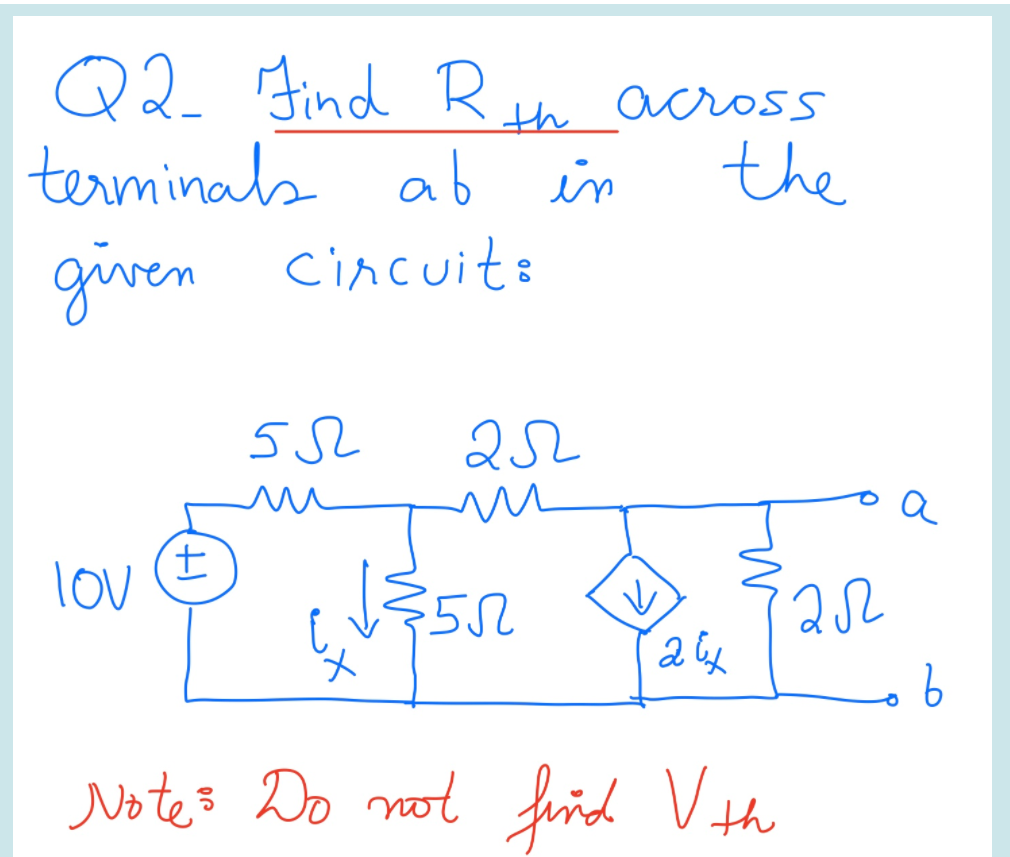 Q2- Find Rth across
terminals ab in the
given circuit:
5Ω 2Ω
a
10V + - ix 5Ω 2ix 2Ω
b
Note: Do not find Vth